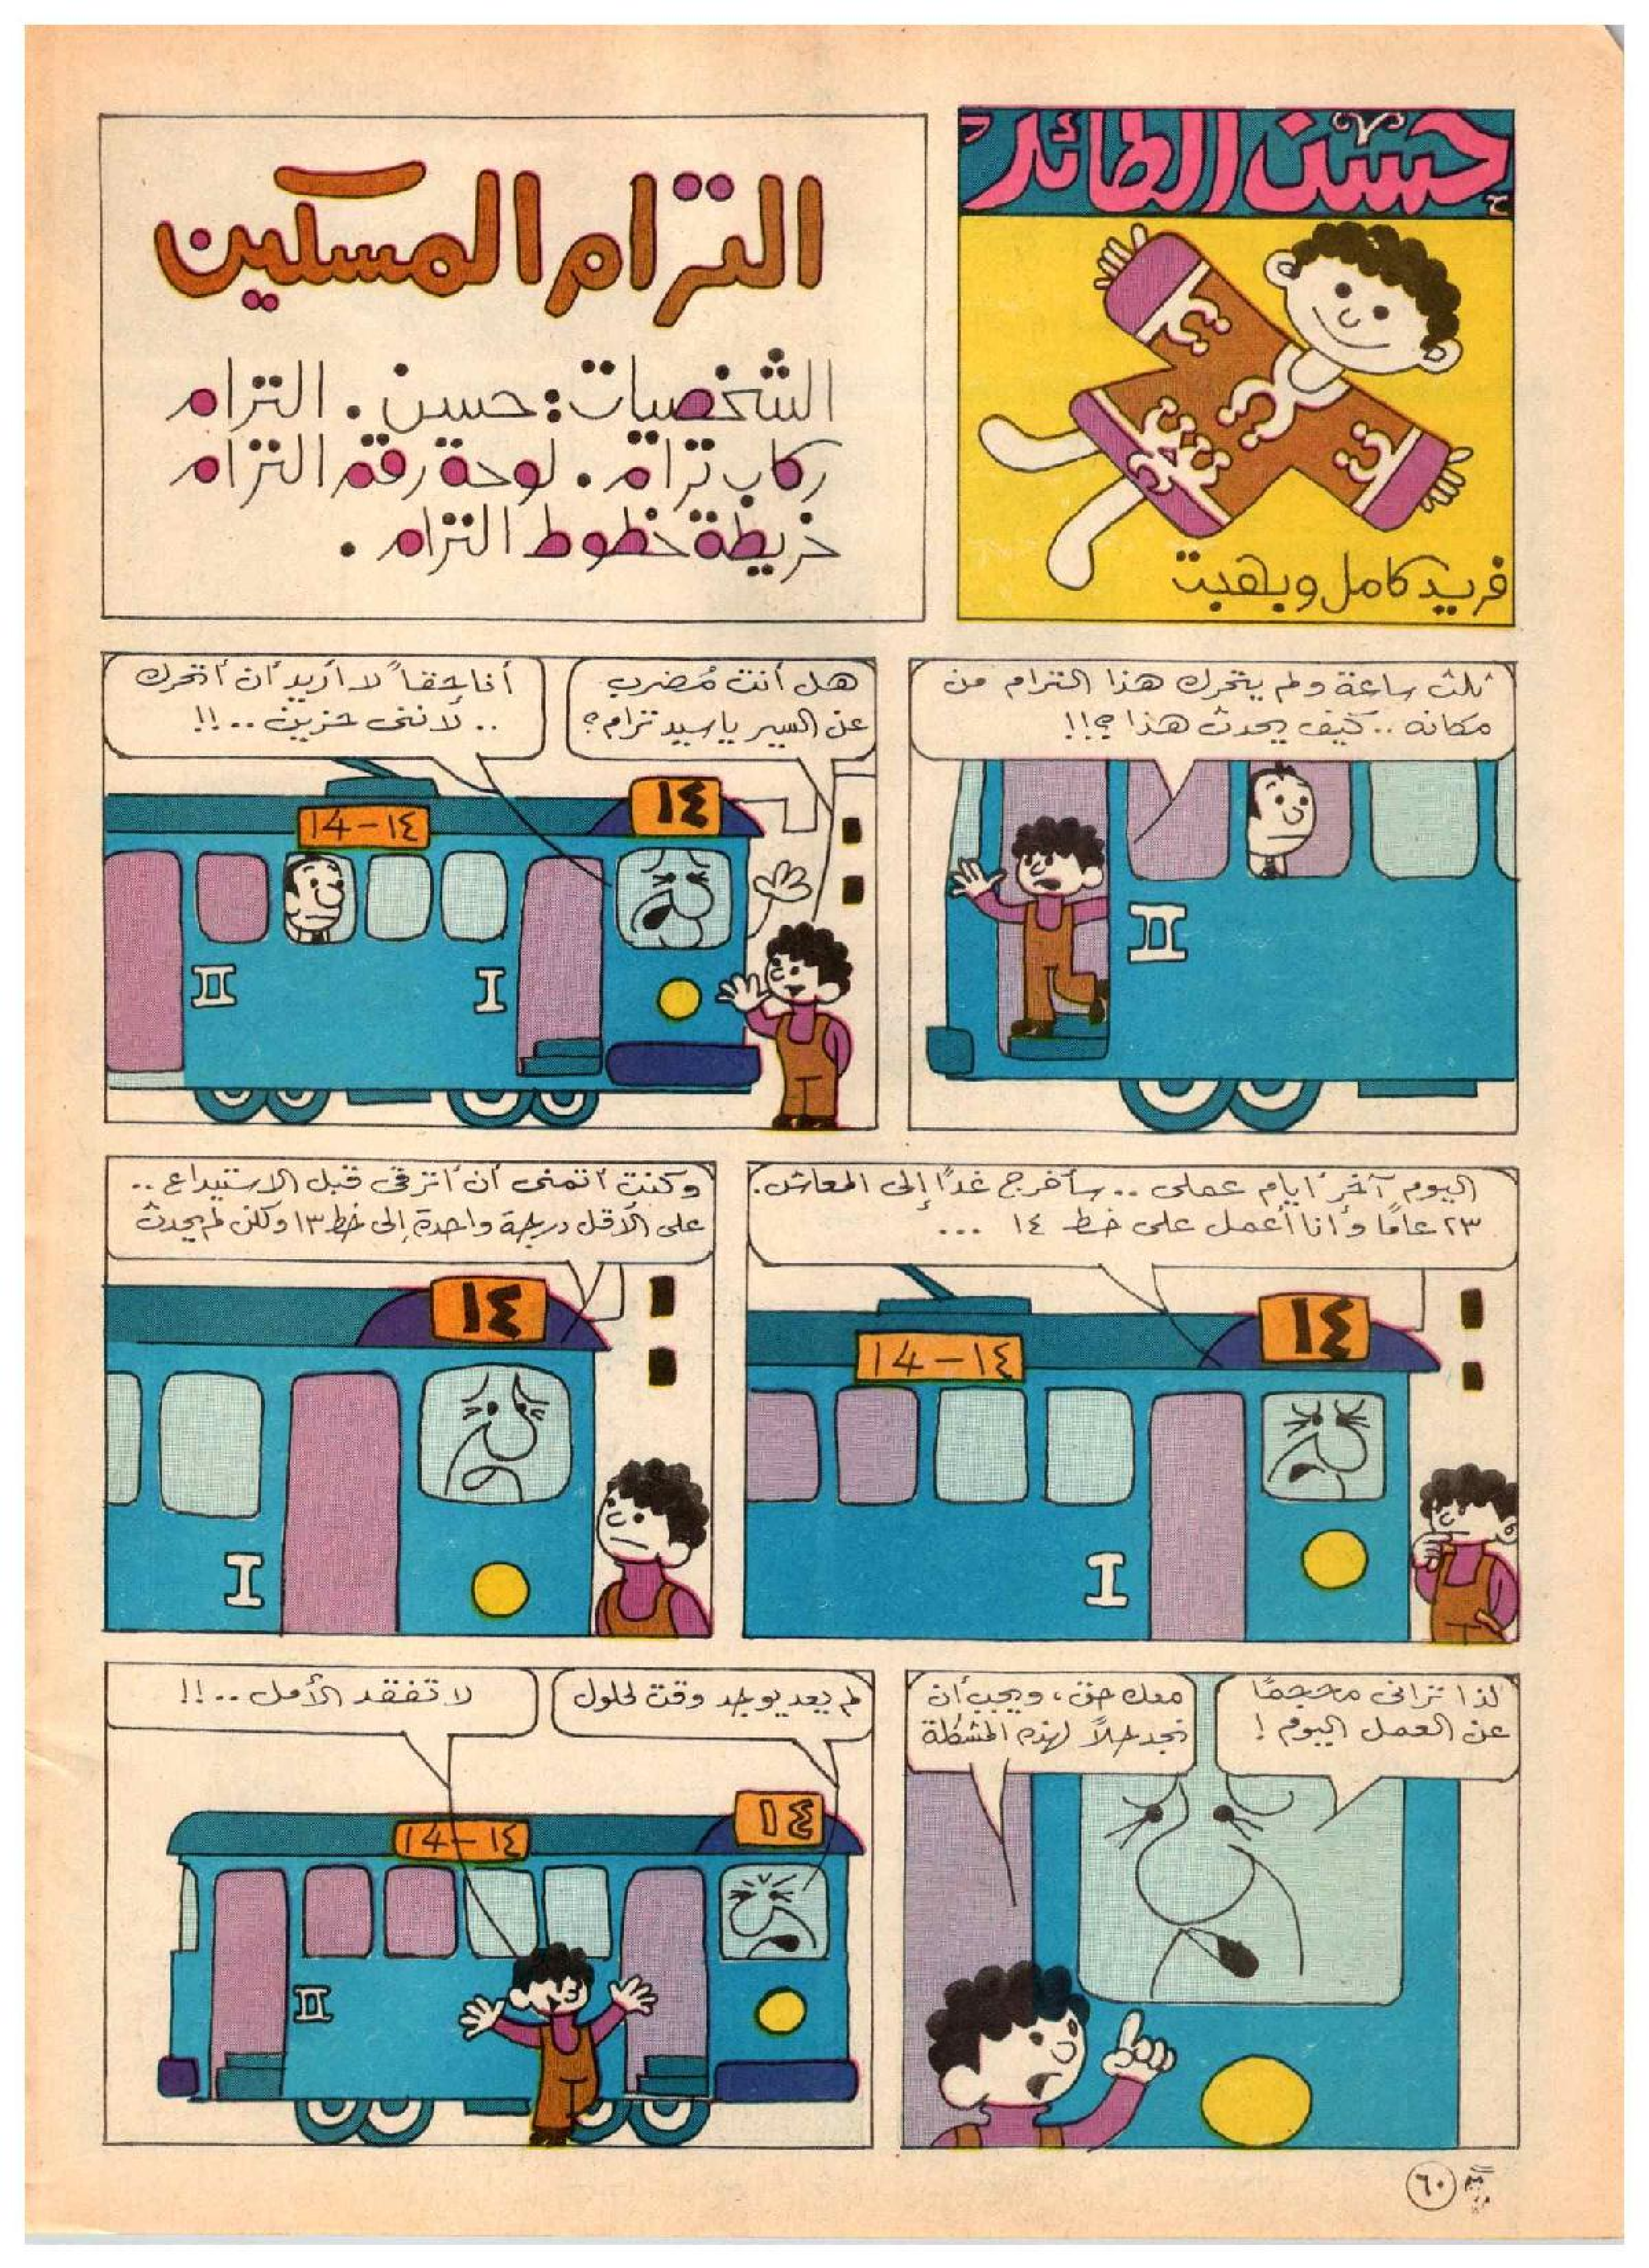 حسن الطائر
فريد كامل وبهجت
الترام المسكين
الشخصيات: حسن. الترام
ركاب ترام. لوحة رقم الترام
خريطة خطوط الترام.
ثلث ساعة ولم يتحرك هذا الترام من
مكانه .. كيف يحدث هذا ؟!!
هل أنت مُضرب
عن السير يا سيد ترام؟
أنا حقاً لا أريد أن أتحرك
.. لأننى حزين ..!!
١٤
14-١٤
II
I
II
اليوم آخر أيام عملى .. سأخرج غدًا إلى المعاش.
٢٣ عامًا وأنا أعمل على خط ١٤ ...
١٤
14-١٤
I
وكنت أتمنى أن أترقى قبل الاستيداع ..
على الأقل درجة واحدة إلى خط ١٣ ولكن لم يحدث
١٤
I
لذا ترانى محجمًا
عن العمل اليوم !
معك حق، ويجب أن
نجد حلاً لهذه المشكلة
لم يعد يوجد وقت لحلول
لا تفقد الأمل ..!!
١٤
14-١٤
II
٦٠